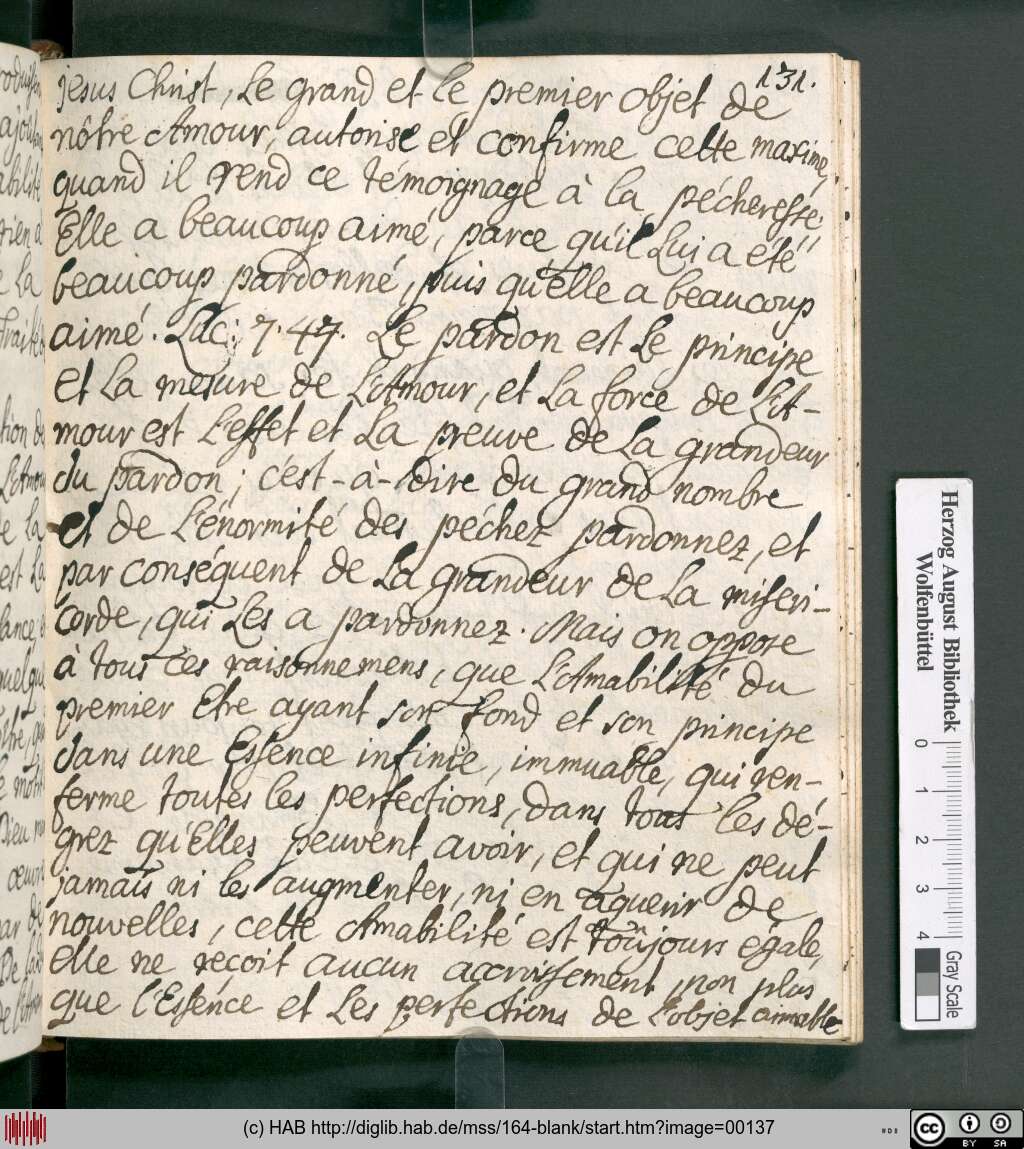 131.
Jesus Christ, Le grand et le premier objet de
nôtre Amour, autorise et confirme cette maxime,
quand il rend ce témoignage à la pécheresse:
Elle a beaucoup aimé, parce qu'il Lui a été
beaucoup pardonné, puis qu'elle a beaucoup
aimé. Luc: 7. 47. Le pardon est Le principe
et La mesure de L'Amour, et La force de L'A-
mour est L'effet et La preuve de La grandeur
du pardon; c'est-à-dire du grand nombre
et de L'énormité des péchez pardonnez, et
par conséquent de La grandeur de La miseri-
corde, qui Les a pardonnez. Mais on oppose
à tous ces raisonnemens, que L'Amabilité du
premier Etre ayant son fond et son principe
dans une Essence infinie, immuable, qui ren-
ferme toutes les perfections, dans tous les dé-
grez qu'Elles peuvent avoir, et qui ne peut
jamais ni les augmenter, ni en aquerir de
nouvelles, cette Amabilité est toûjours égale,
elle ne reçoit aucun accroissement, non plus
que l'Essence et Les perfections de L'objet aimable
Herzog August Bibliothek
Wolfenbüttel
0 1 2 3 4
Gray Scale
(c) HAB http://diglib.hab.de/mss/164-blank/start.htm?image=00137
cc BY SA